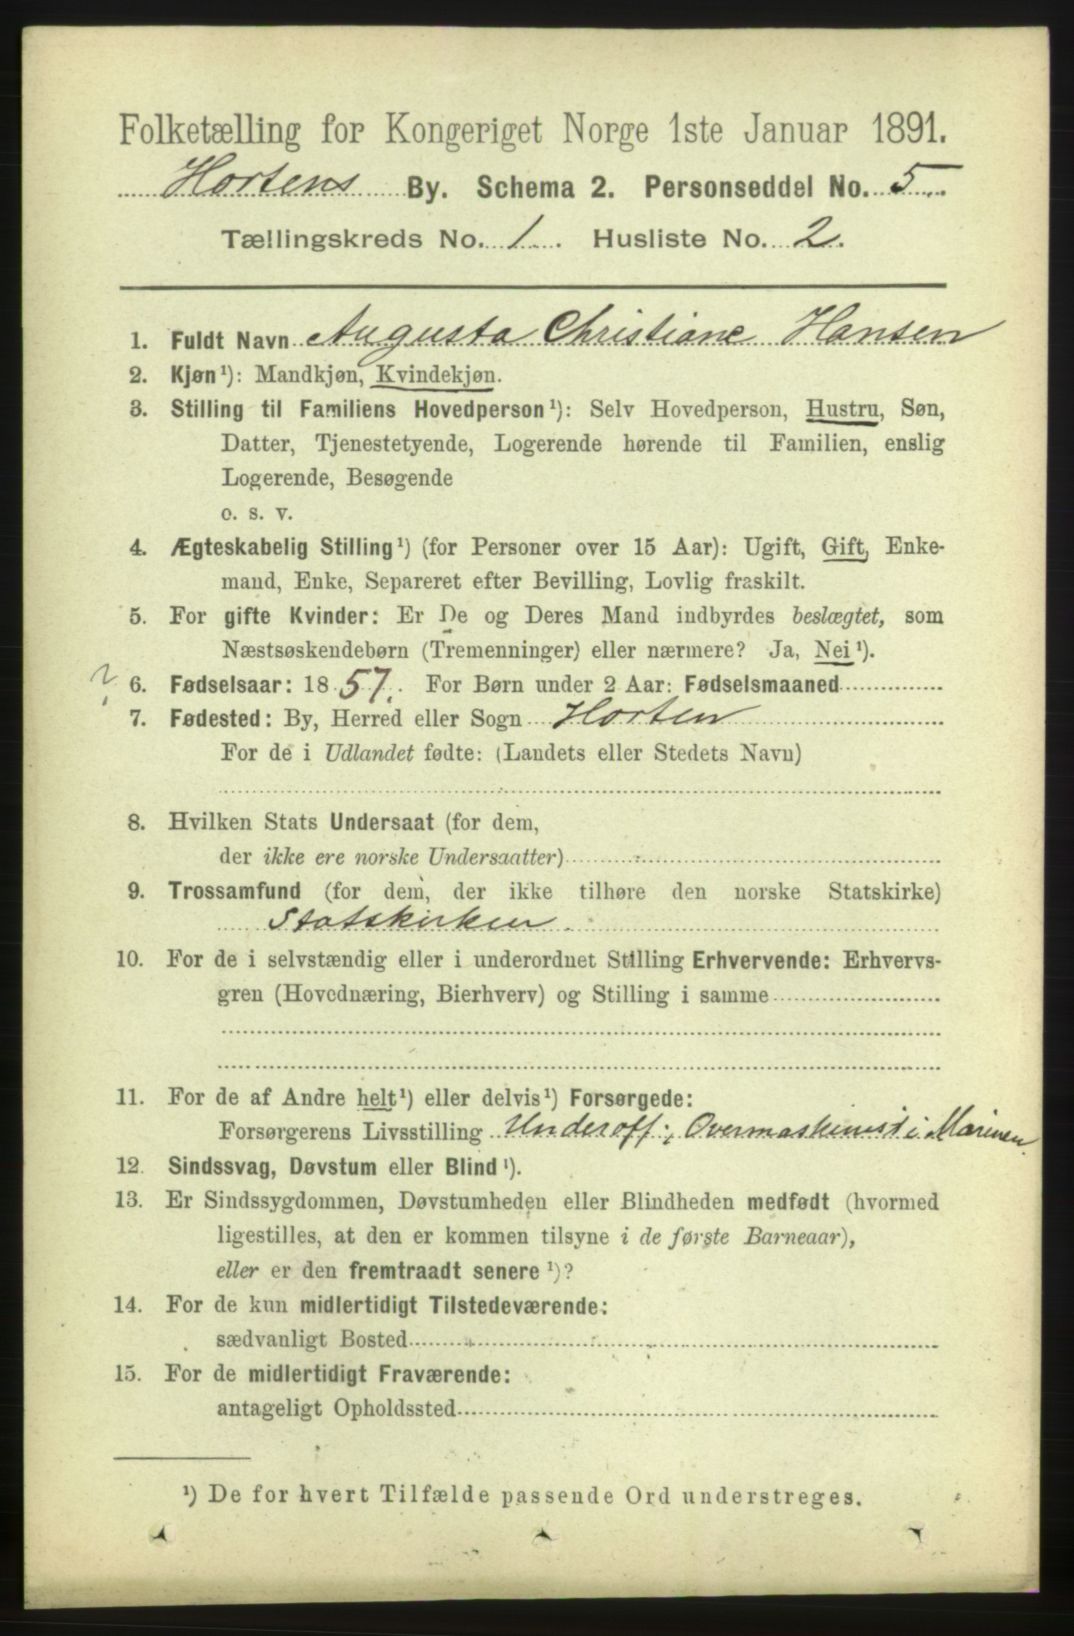 Folketælling for Kongeriget Norge 1ste Januar 1891.
Hortens By. Schema 2. Personseddel No. 5.
Tællingskreds No. 1. Husliste No. 2.
1. Fuldt Navn Augusta Christiane Hansen
2. Kjøn¹): Mandkjøn, Kvindekjøn.
3. Stilling til Familiens Hovedperson¹): Selv Hovedperson, Hustru, Søn,
Datter, Tjenestetyende, Logerende hørende til Familien, enslig
Logerende, Besøgende
o. s. v.
4. Ægteskabelig Stilling¹) (for Personer over 15 Aar): Ugift, Gift, Enke-
mand, Enke, Separeret efter Bevilling, Lovlig fraskilt.
5. For gifte Kvinder: Er De og Deres Mand indbyrdes beslægtet, som
Næstsøskendebørn (Tremenninger) eller nærmere? Ja, Nei¹).
? 6. Fødselsaar: 1857. For Børn under 2 Aar: Fødselsmaaned
7. Fødested: By, Herred eller Sogn Horten
For de i Udlandet fødte: (Landets eller Stedets Navn)
8. Hvilken Stats Undersaat (for dem,
der ikke ere norske Undersaatter)
9. Trossamfund (for dem, der ikke tilhøre den norske Statskirke)
Statskirken.
10. For de i selvstændig eller i underordnet Stilling Erhvervende: Erhvervs-
gren (Hovednæring, Bierhverv) og Stilling i samme
11. For de af Andre helt¹) eller delvis¹) Forsørgede:
Forsørgerens Livsstilling Underoff.; Overmaskinist i Marinen.
12. Sindssvag, Døvstum eller Blind¹).
13. Er Sindssygdommen, Døvstumheden eller Blindheden medfødt (hvormed
ligestilles, at den er kommen tilsyne i de første Barneaar),
eller er den fremtraadt senere¹)?
14. For de kun midlertidigt Tilstedeværende:
sædvanligt Bosted
15. For de midlertidigt Fraværende:
antageligt Opholdssted
¹) De for hvert Tilfælde passende Ord understreges.